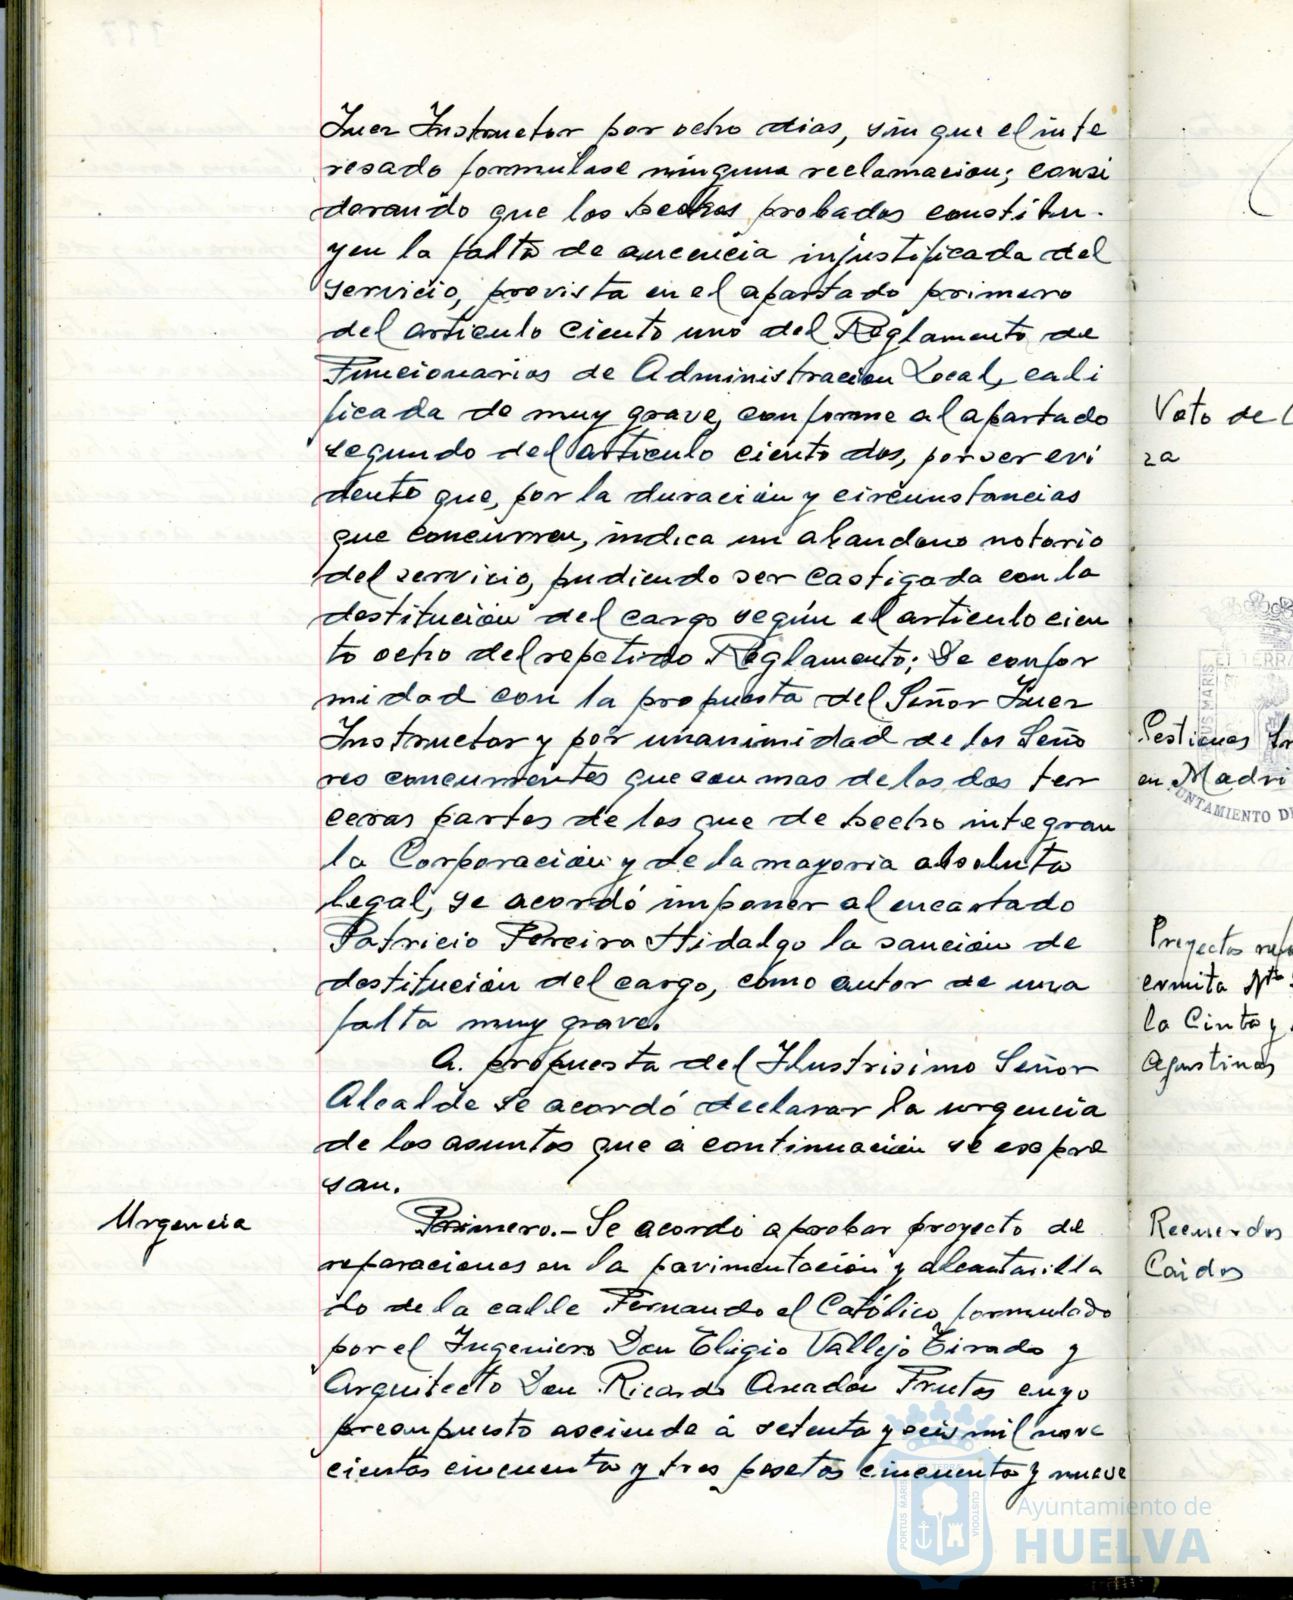 Juez Instructor por ocho dias, sin que el inte
resado formulase ninguna reclamacion; consi
derando que los hechos probados constitu-
yen la falta de aucencia injustificada del
servicio, prevista en el apartado primero
del articulo ciento uno del Reglamento de
Funcionarios de Administracion Local, cali
ficada de muy grave, conforme al apartado
segundo del articulo ciento dos, por ser evi
dente que, por la duración y circunstancias
que concurren, indica un abandono notorio
del servicio, pudiendo ser castigada con la
destitución del cargo según el articulo cien
to ocho del repetido Reglamento; De confor
midad con la propuesta del Señor Juez
Instructor y por unanimidad de los Seño
res concurrentes que son mas de las dos ter
ceras partes de los que de hecho integran
la Corporación y de la mayoria absoluta
legal, se acordó imponer al encartado
Patricio Pereira Hidalgo la sanción de
destitución del cargo, como autor de una
falta muy grave.
A. propuesta del Ilustrisimo Señor
Alcalde se acordó declarar la urgencia
de los asuntos que a continuación se expre
san.
Urgencia
Primero.- Se acordó aprobar proyecto de
reparaciones en la pavimentación y alcantarilla
do de la calle Fernando el Católico, formulado
por el Ingeniero Don Eligio Vallejo Tirado y
Arquitecto Don Ricardo Anadón Frutos cuyo
presupuesto asciende á setenta y seis mil nove
cientas cincuenta y tres pesetas cincuenta y nueve
Voto de
za
Gestiones
en Madri
UNTAMIENTO DE
Proyectos
ermita Ntª
la Cinta y
Agustinas
Recuerdos
Caidos
Ayuntamiento de
HUELVA